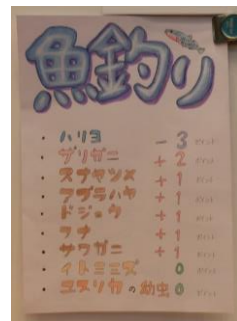 魚釣り
・ ハリヨ － 3 ポイント
・ ザリガニ ＋ 2 ポイント
・ スナヤツメ ＋ 1 ポイント
・ アブラハヤ ＋ 1 ポイント
・ ドジョウ ＋ 1 ポイント
・ フナ ＋ 1 ポイント
・ サワガニ ＋ 1 ポイント
・ イトミミズ 0 ポイント
・ ユスリカの幼虫 0 ポイント